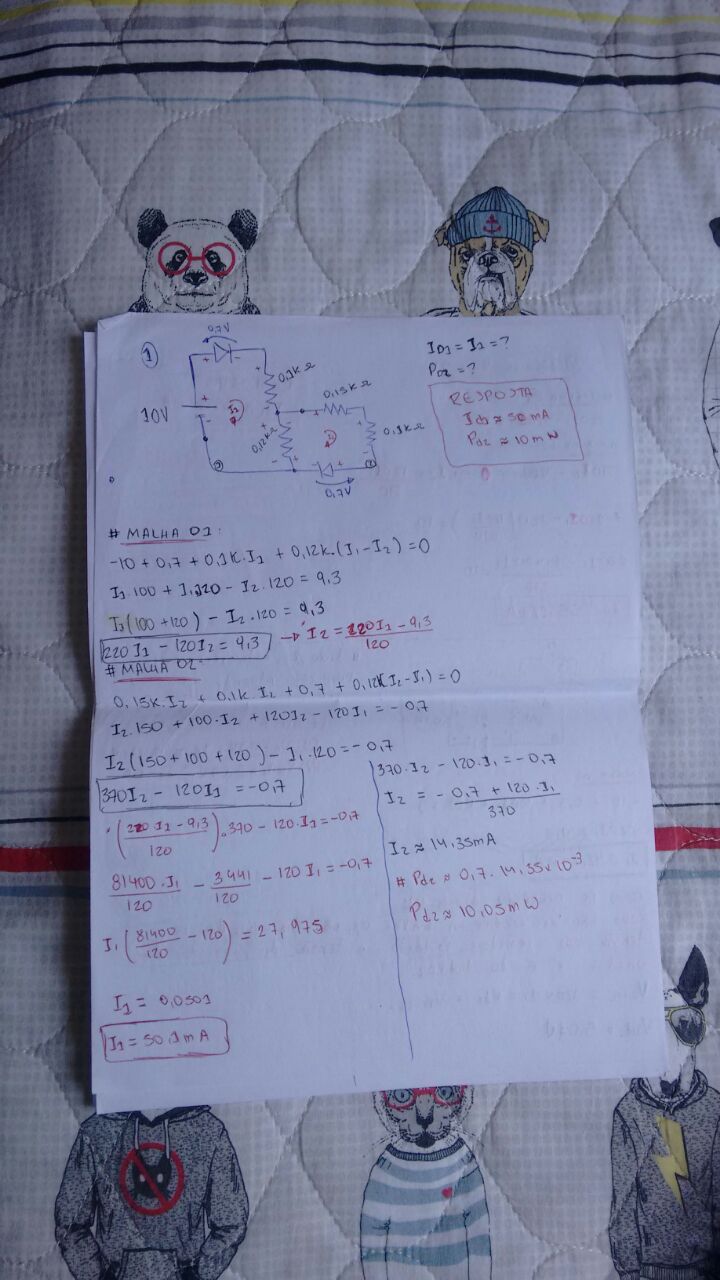 1
0,7V
0,1kΩ
10V
I1
0,12kΩ
0,15kΩ
0,1kΩ
0,7V
ID1 = I1 = ?
PD2 = ?
RESPOSTA
Id1 ≈ 50 mA
Pd2 ≈ 10 mW
# MALHA 01:
-10 + 0,7 + 0,1k.I1 + 0,12k.(I1-I2) = 0
I1.100 + I1.120 - I2.120 = 9,3
I1(100+120) - I2.120 = 9,3
220I1 - 120I2 = 9,3 → I2 = 220I1 - 9,3 / 120
# MALHA 02:
0,15k.I2 + 0,1k.I2 + 0,7 + 0,12k(I2-I1) = 0
I2.150 + 100.I2 + 120I2 - 120I1 = -0,7
I2(150+100+120) - I1.120 = -0,7
370I2 - 120I1 = -0,7
(220I1 - 9,3 / 120).370 - 120.I1 = -0,7
81400.I1 / 120 - 3441 / 120 - 120I1 = -0,7
I1(81400 / 120 - 120) = 27,975
I1 = 0,0501
I1 = 50,1mA
370.I2 - 120.I1 = -0,7
I2 = - 0,7 + 120.I1 / 370
I2 ≈ 14,35mA
# Pd2 ≈ 0,7.14,35x10⁻³
Pd2 ≈ 10,05mW